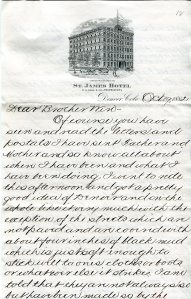 St. James Hotel
Denver, Colo. Oct
Dear Brother Will —
Of course you have
seen and read the letters and
postals I have sent Father and
Mother and so know all about
when I have been and what I
have been doing. I went to ride
this afternoon and got a pretty
good idea of Denver and on the
whole have very much with the
exception of the streets which are
not paved and are covered with
about four inches of black mud
which is just soft enough to
stick well to one's clothes boots
or whatever else it strikes. I am
told that they are not always so
but have been made so by the